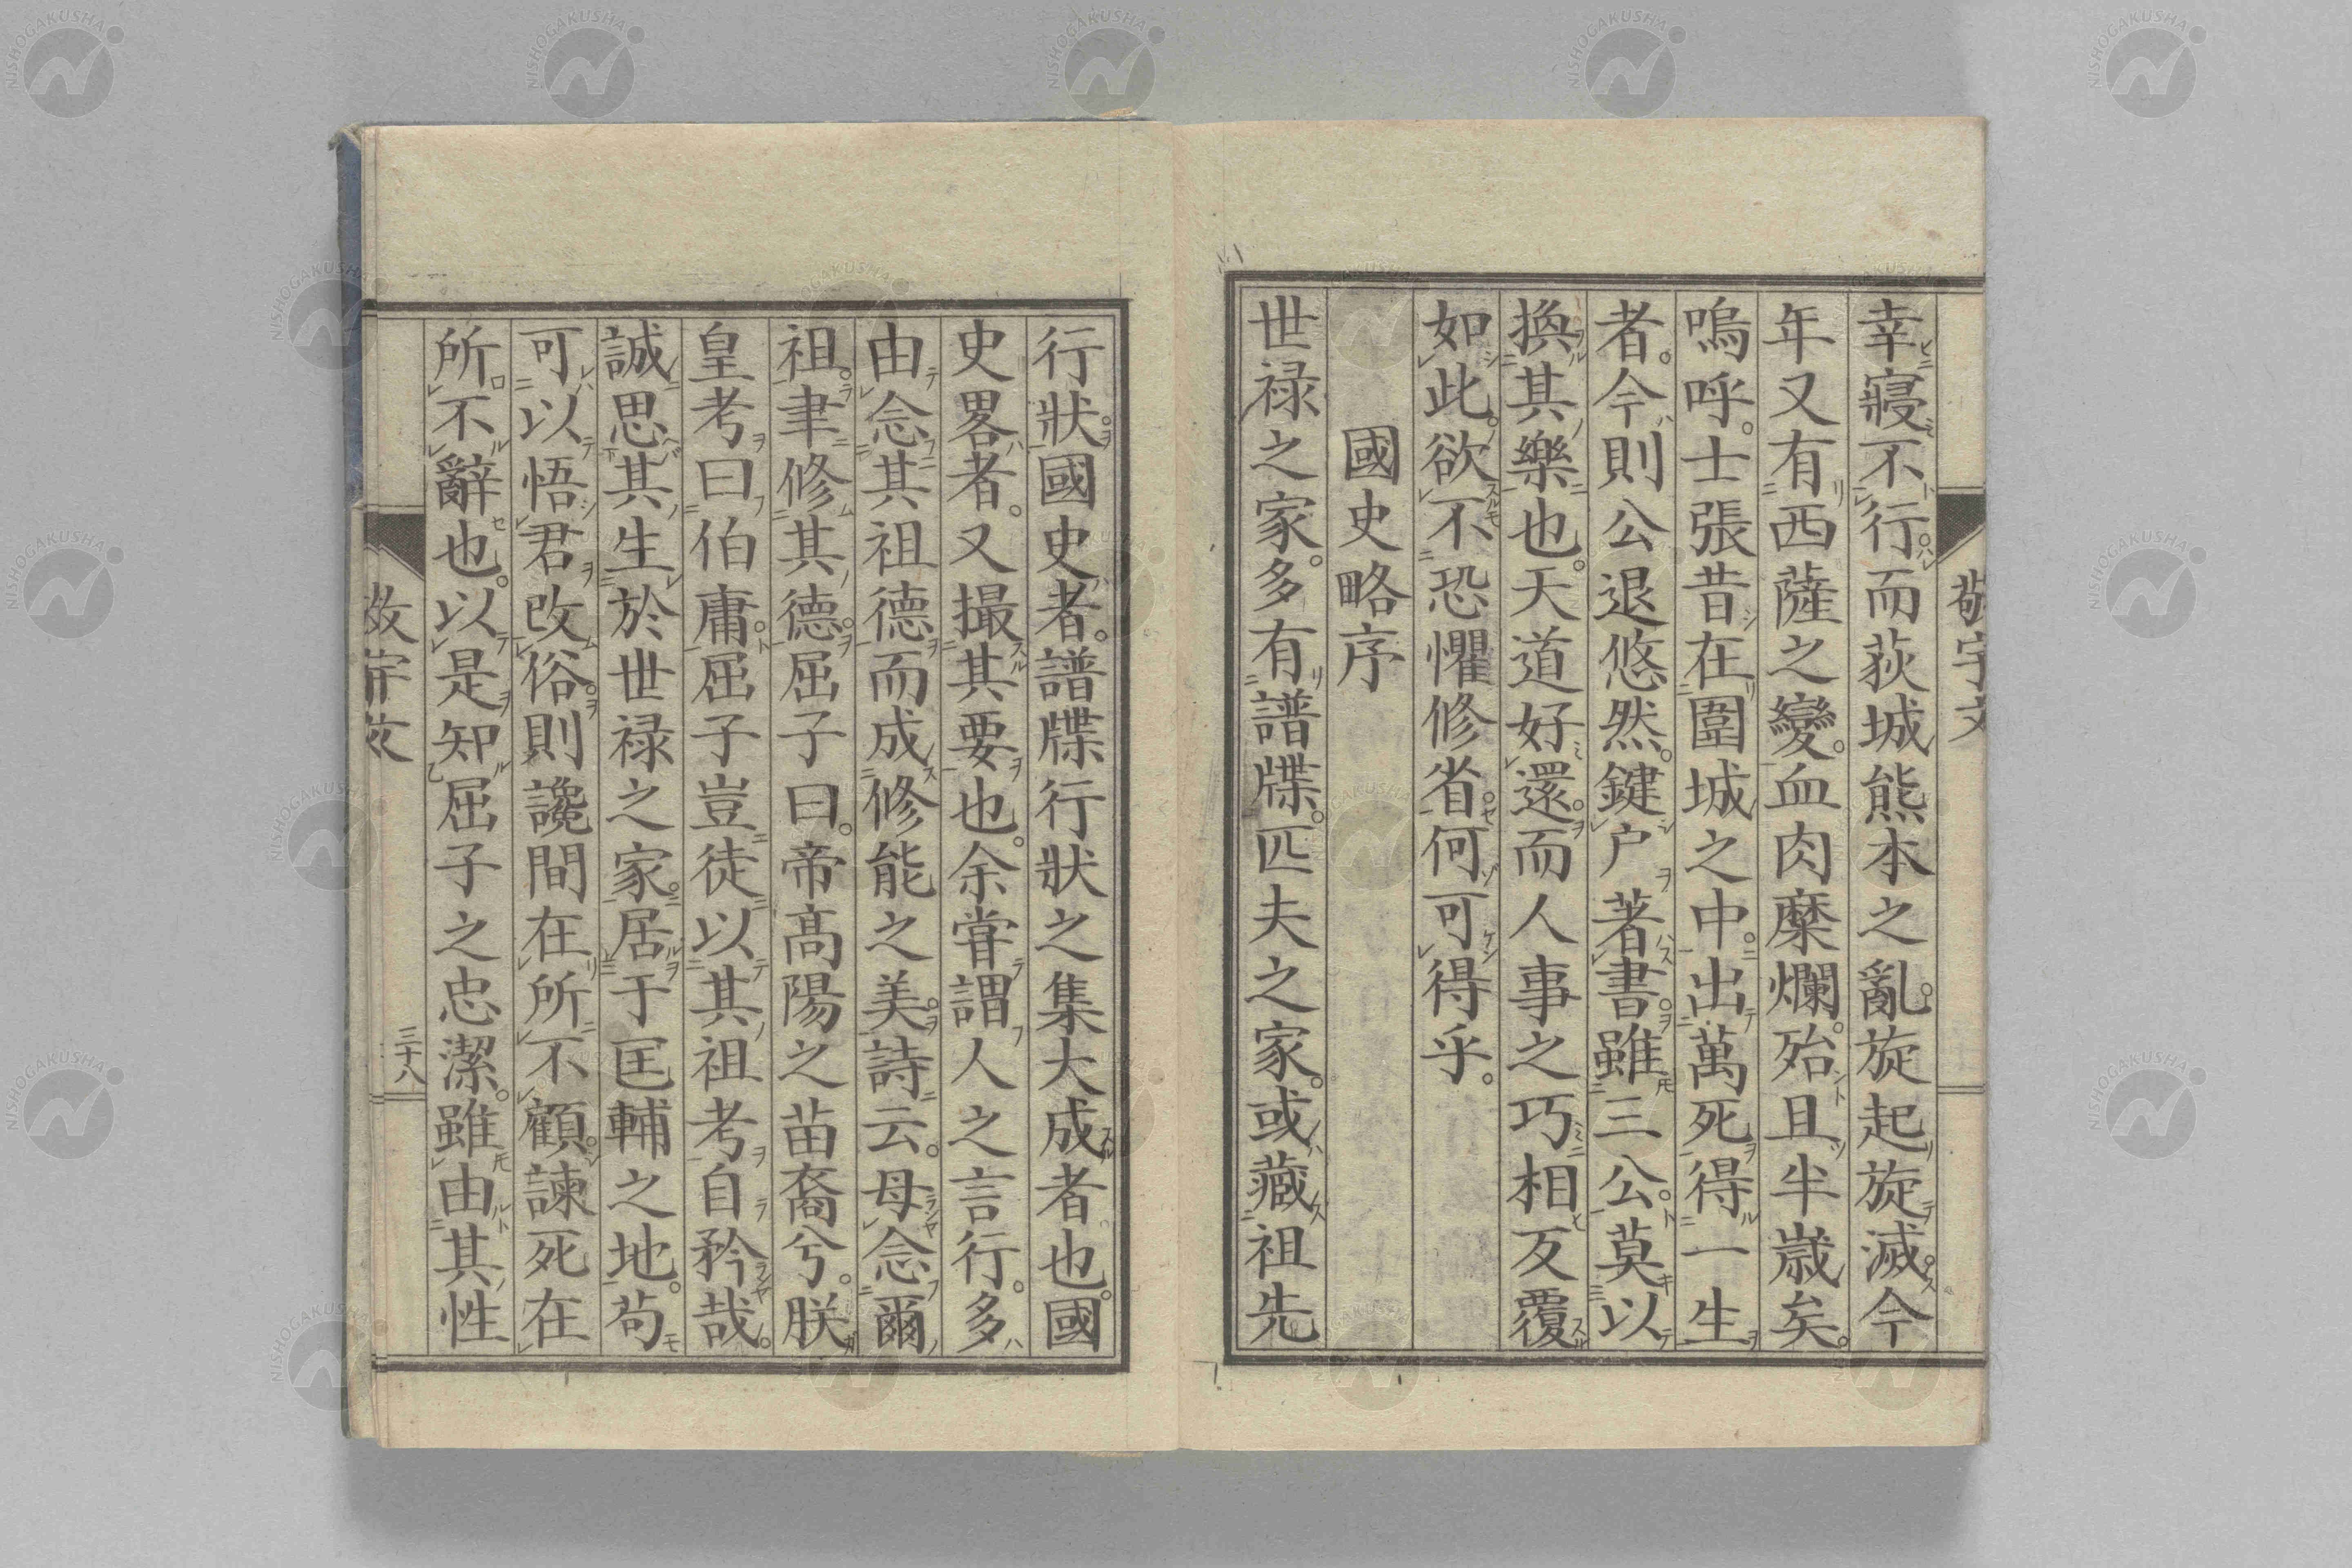 敬宇文
幸寢不行而荻城熊本之亂旋起旋滅今
年又有西薩之變。血肉糜爛。殆且半歲矣。
嗚呼。士張昔在圍城之中。出萬死得一生
者。今則公退悠然。鍵户著書。雖三公。莫以
換其樂也。天道好還。而人事之巧相反覆
如此。欲不恐懼修省。何可得乎。
國史略序
世禄之家。多有譜牒。匹夫之家。或藏祖先
行狀。國史者。譜牒行狀之集大成者也。國
史畧者。又撮其要也。余甞謂人之言行。多
由念其祖德而成修能之美。詩云。母念爾
祖。聿修其德。屈子曰。帝髙陽之苗裔兮。朕
皇考曰伯庸。屈子豈徒以其祖考自矜哉。
誠思其生於世禄之家。居于匡輔之地。苟
可以悟君改俗。則讒間在所不顧。諫死在
所不辭也。以是知屈子之忠潔。雖由其性
三十八